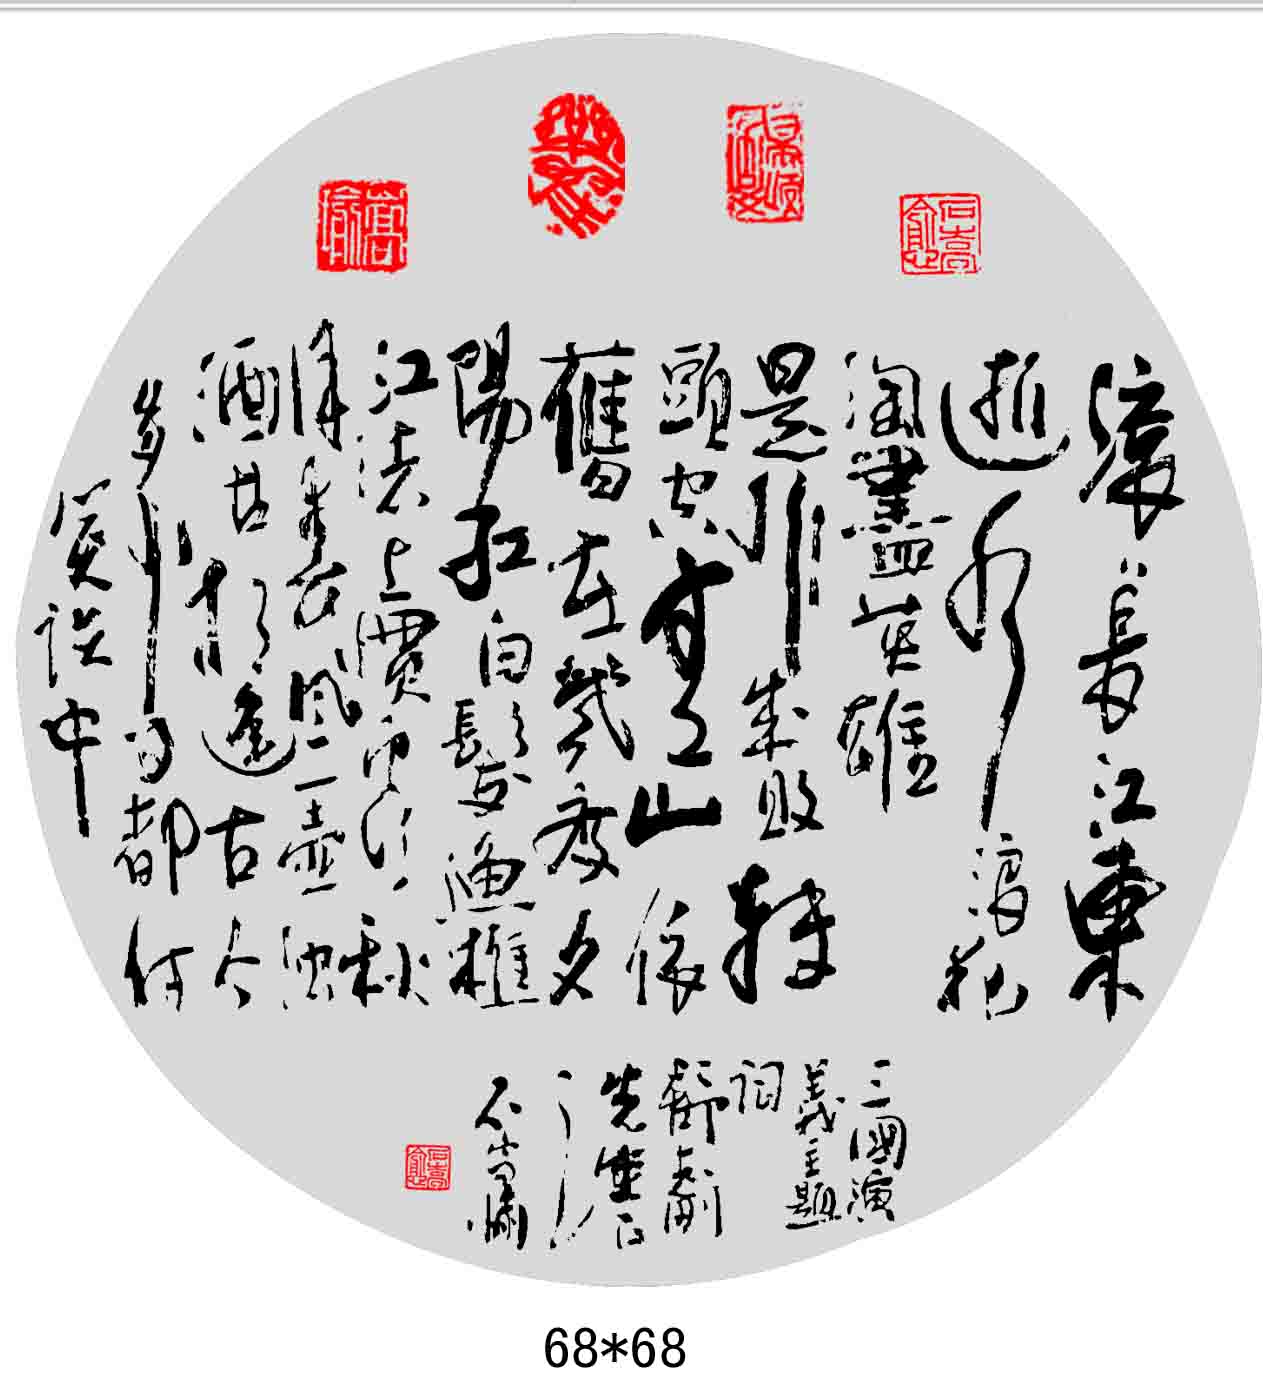 滾〻長江東
逝水浪花
淘盡英雄
是非成敗轉
頭空青山依
舊在幾度夕
陽紅白髮漁樵
江渚上慣看秋
月春風一壺濁
酒喜相逢古今
多少事都付
笑談中
三國演
義主題
詞
先生正
68*68